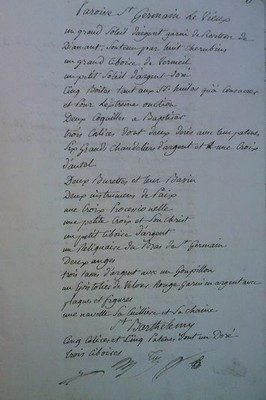 Paroisse St Germain Le Vieux
un grand Soleil d'argent garni de
Diamant, Soutenu par huit Cherubins
un grand Ciboire de Vermeil
un petit Soleil d'argent doré
Cinq Boëtes tant aux Sts huiles qu'a consacrer
et Pour L'extreme onction
Deux Coquilles a Baptiser
trois Calices dont deux dorés avec leur patenes
Six Grands Chandeliers d'argent et une Croix
d'autel
Deux Burettes et leur Bassin
Deux instrumens de Paix
une Croix Processionnelle
une petite Croix et Son Christ
un petit Ciboire d'argent
un Reliquaire du Bras de St Germain
Deux anges
trois d'argent avec un Goupillon
un de Velours Rouge Garni en argent avec
plaques et figures
une navette Sa Cuilliere et Sa Chaine
St Barthelemy
Cinq Calices et Cinq Patenes, dont un Doré
trois Ciboires